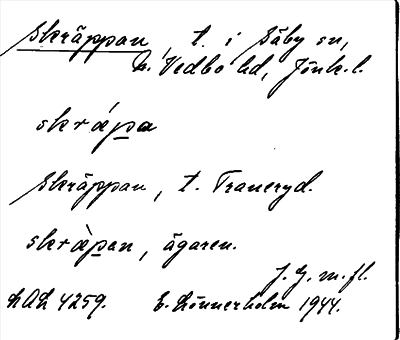 Skräppan, t. i Säby sn,
N. Vedbo hd, Jönk. l.
skrǽpa
Skräppan, t. Traneryd.
skræ̀pan, ägaren.
J. G. m. fl.
LAL 4259. E. Lönnerholm 1944.